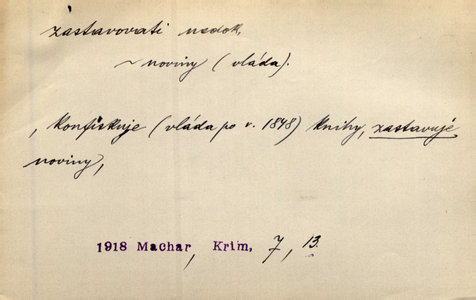 zastavovati nedok.
~ noviny (vláda).
, konfiskuje (vláda po r. 1848) knihy, zastavuje
noviny,
1918 Machar, Krim, 7, 13.